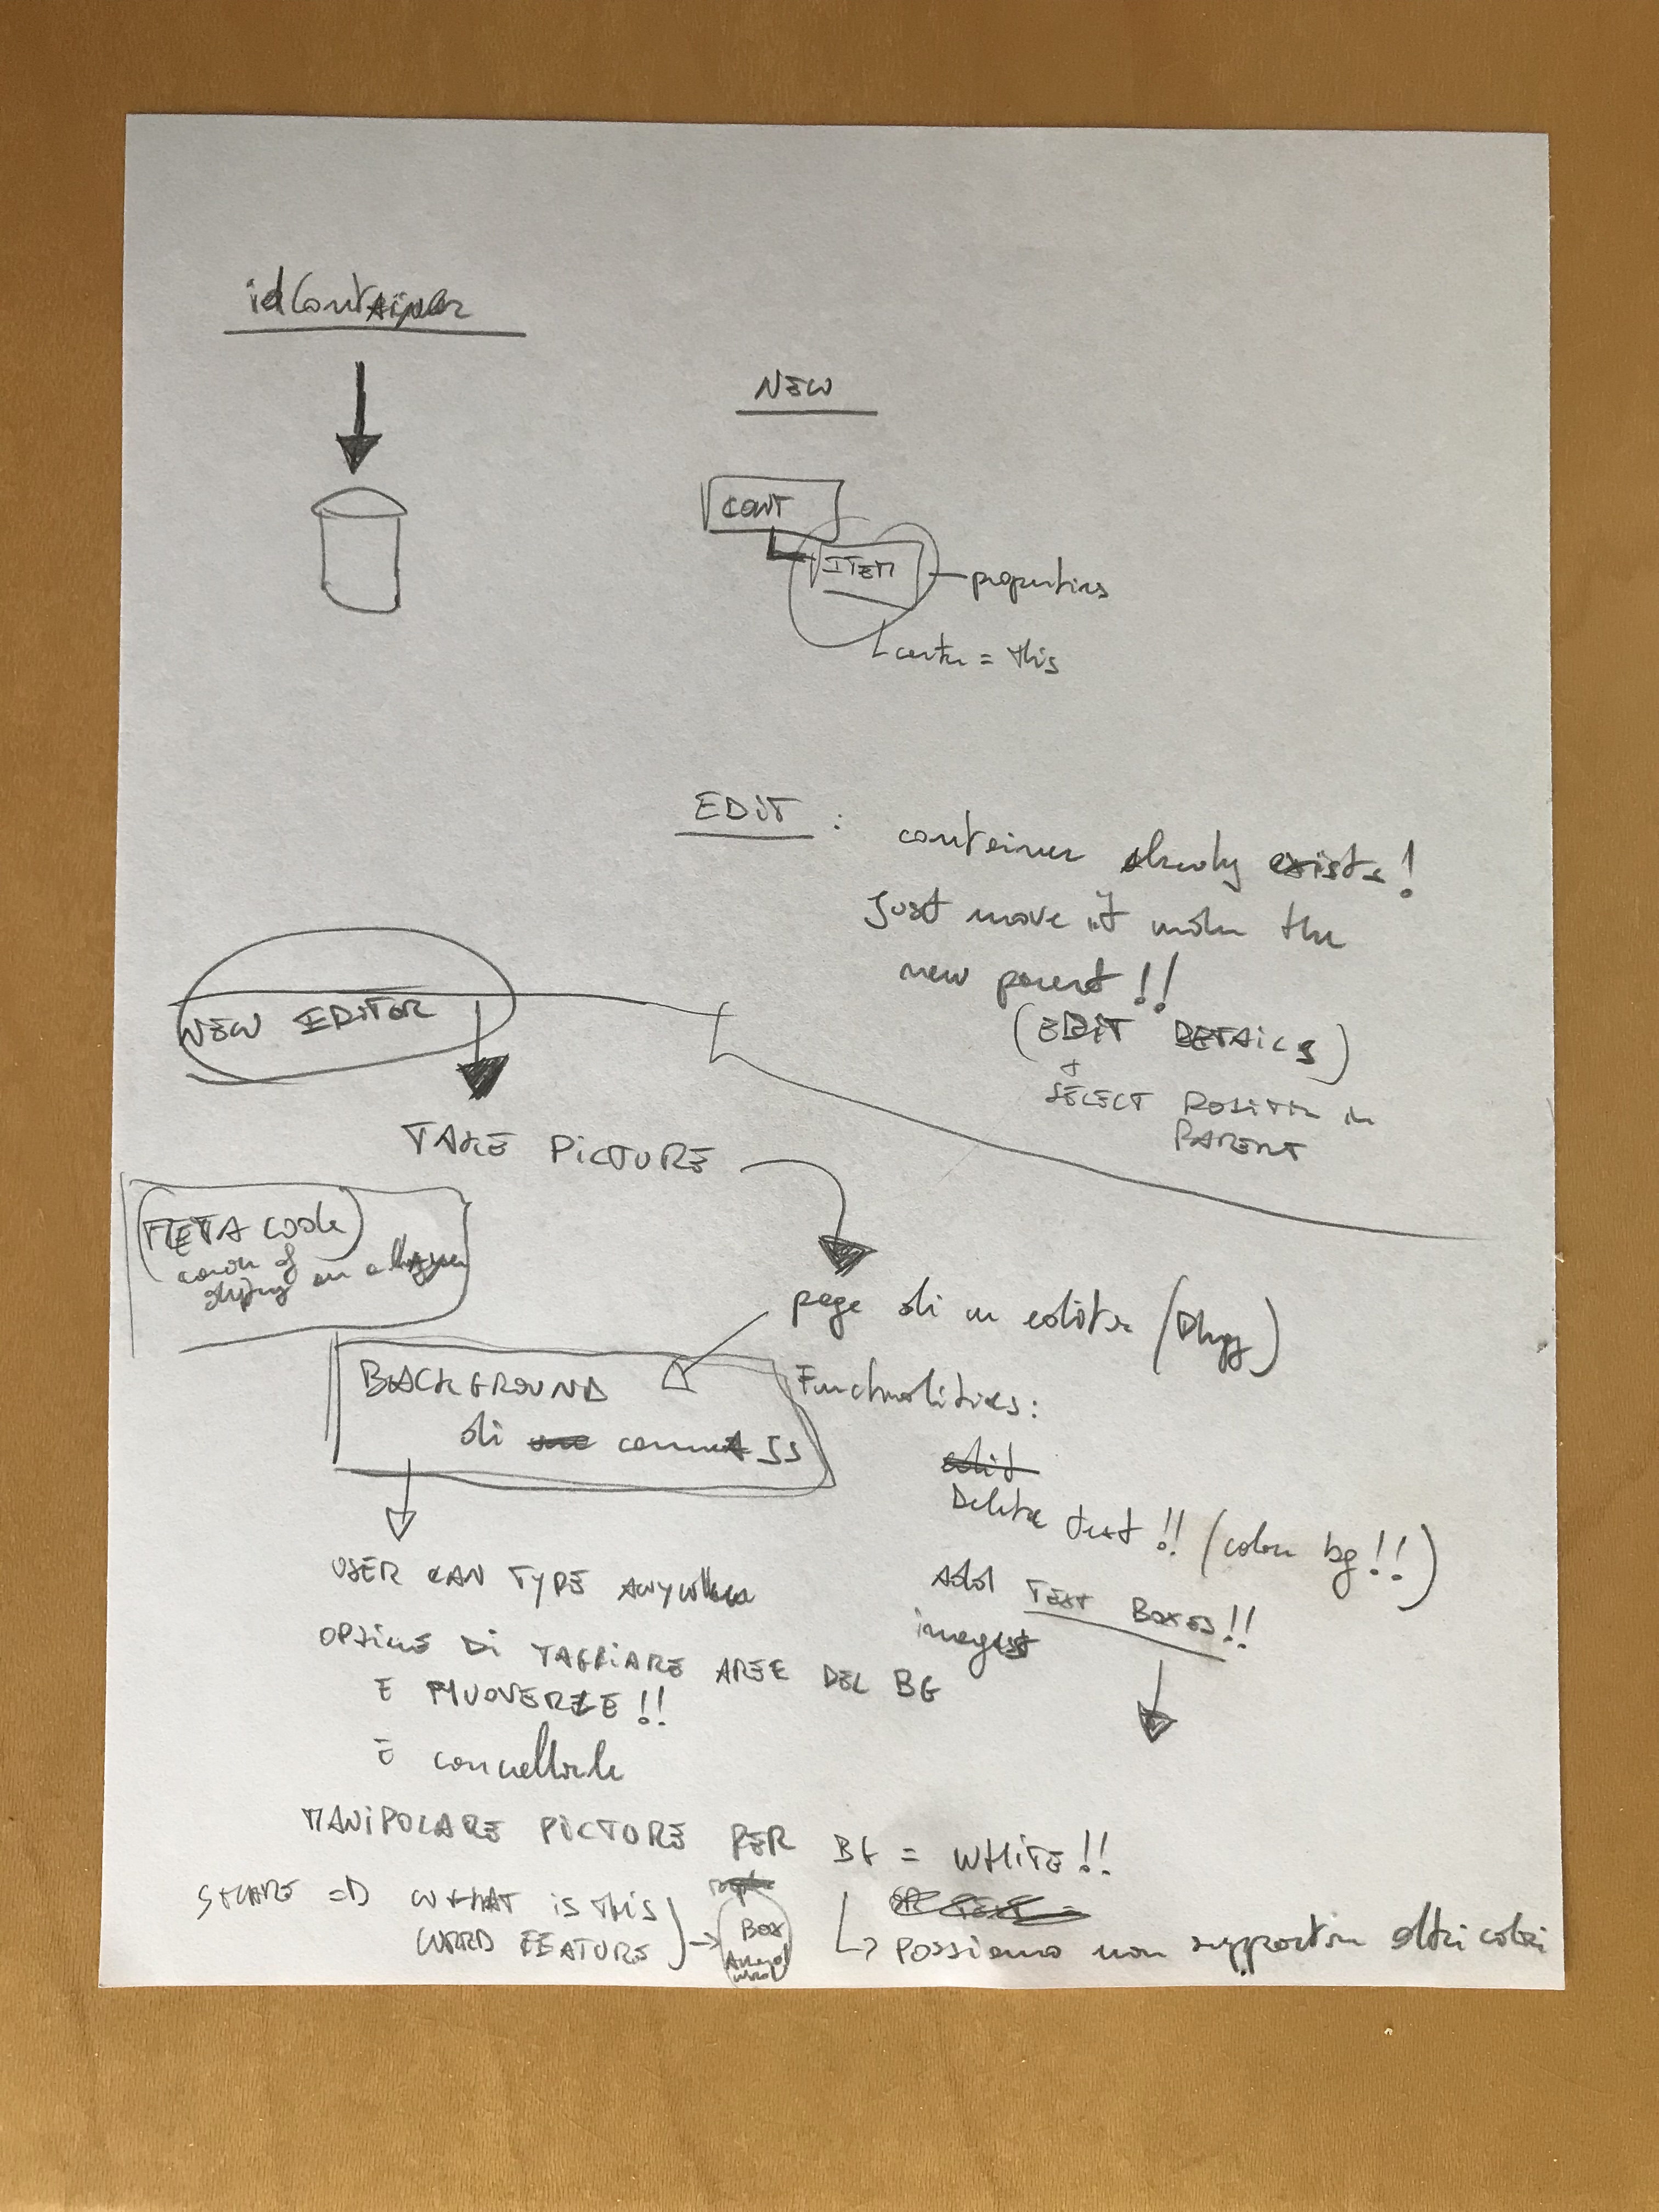 idContainer
NEW
CONT
ITEM
properties
= this
EDIT : container already exists!
Just move it under the
new parent!!
(EDIT DETAILS)
+
SELECT POSITION in
PARENT
NEW EDITOR
TAKE PICTURE
META code
on a
page di un editor
BACKGROUND
di JS
Functionalities:
edit
Delete text!! (color bg!!)
Add TEXT BOXES!!
images
USER CAN TYPE ANYWHERE
OPTIONS DI TAGLIARE AREE DEL BG
E MUOVERLE!!
E cancellarle
MANIPOLARE PICTURE PER BG = WHITE!!
SHARE => WHAT IS THIS
FEATURE
Box
Around
word
Possiamo non supportare altri colori